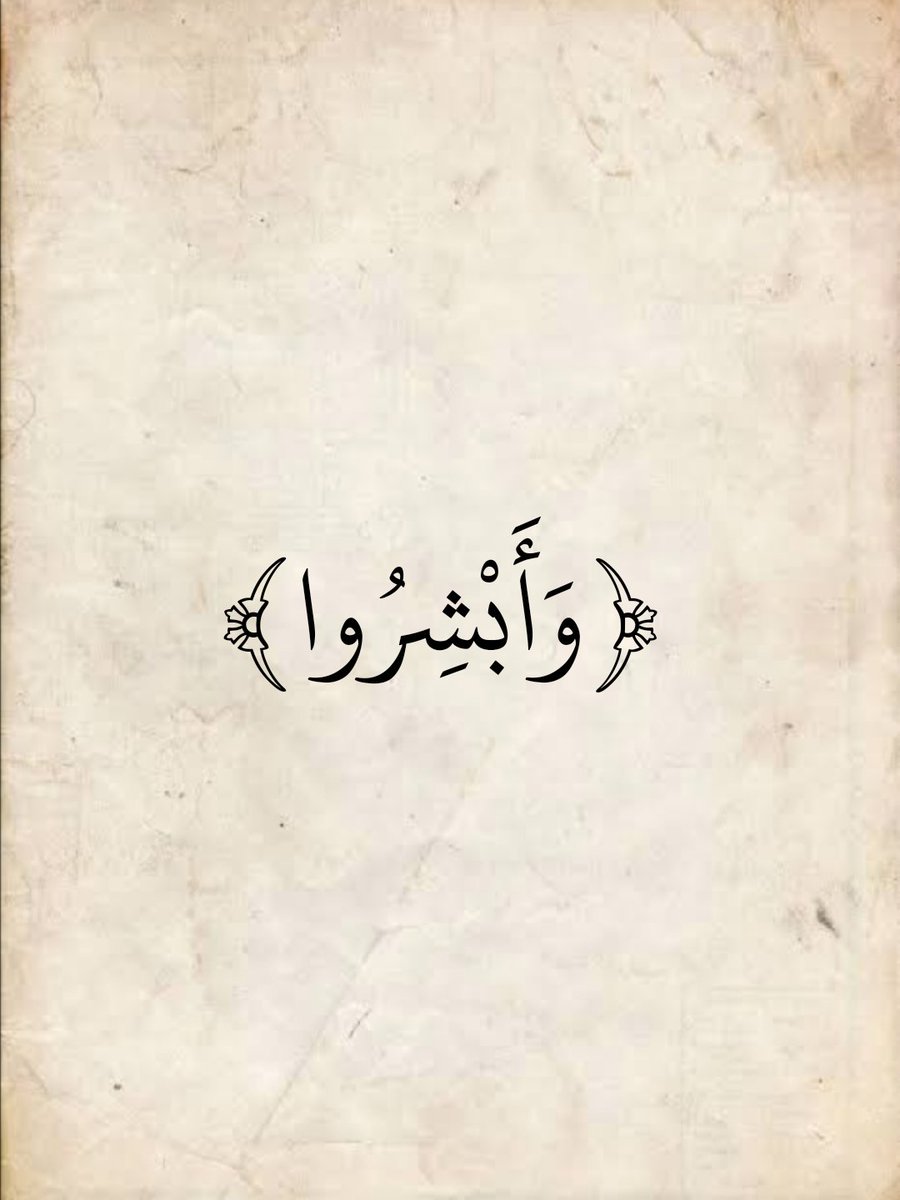 ﴿وَأَبْشِرُوا﴾